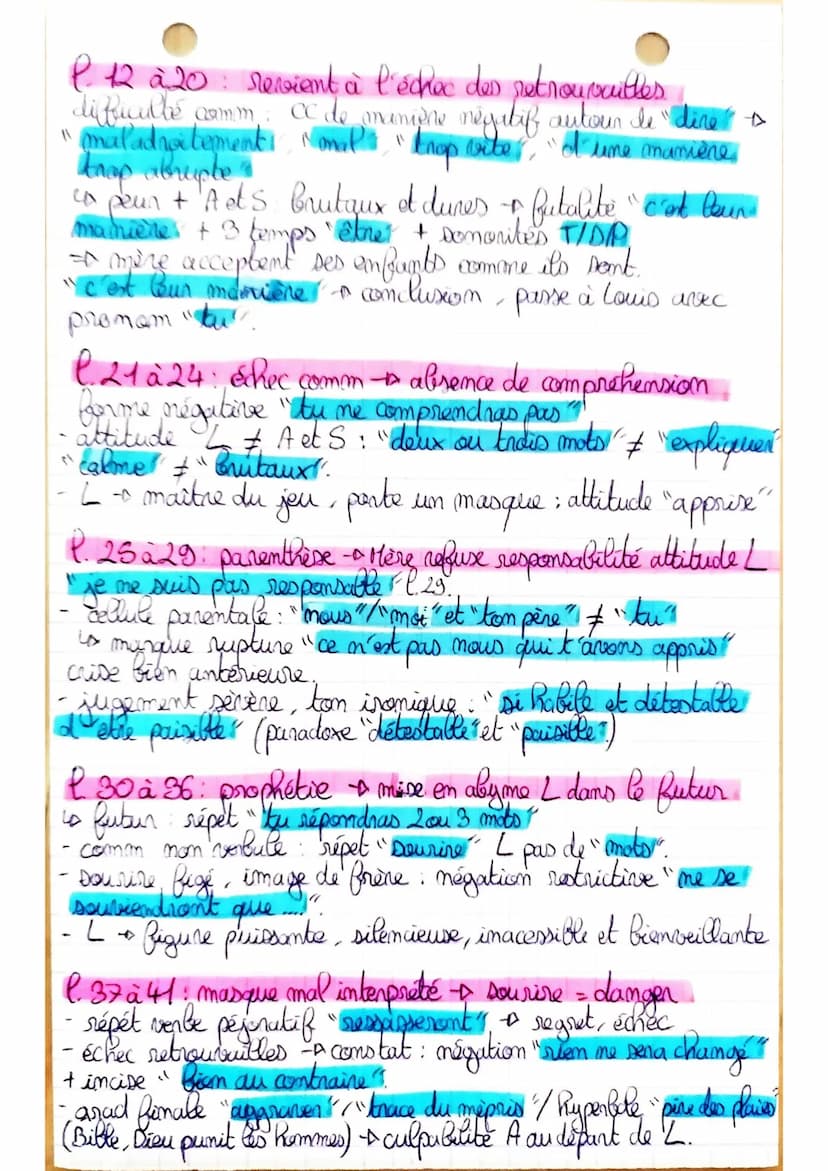 l. 12 à 20 : revoient à l'échec des retrouvailles
difficulté comm : CC de manière négatif autour de "dire" →
"maladroitement", "mal", "trop vite", "d'une manière
trop abrupte"
↳ peur + A et S brutaux et dures → fatalité "c'est leur
manière" + 3 temps "être" + sonorités T/D/P
⇒ mère acceptent ses enfants comme ils sont.
"c'est leur manière" → conclusion, passe à Louis avec
pronom "tu".
l. 21 à 24 : échec comm → absence de compréhension
forme négative "tu ne comprendras pas"
- attitude L ≠ A et S : "deux ou trois mots" ≠ "expliquer"
"calme" ≠ "brutaux".
- L → maître du jeu, porte un masque : attitude "apprise"
l. 25 à 29 : parenthèse → Mère refuse responsabilité attitude L
"je me suis pas responsable" l. 29.
- cellule parentale : "nous"/"moi" et "ton père" ≠ "tu"
↳ marque rupture "ce n'est pas nous qui t'avons appris"
crise bien antérieure.
- jugement sévère, ton ironique : "si habile et détestable
d'être paisible" (paradoxe "détestable" et "paisible")
l. 30 à 36 : prophétie → mise en abyme L dans le futur.
↳ futur : répet "tu répondras 2 ou 3 mots"
- comm non verbale : répet "sourire" L pas de "mots".
- sourire figé, image de frère : négation restrictive "ne se
souviendront que ....".
- L → figure puissante, silencieuse, inacessible et bienveillante
l. 37 à 41 : masque mal interprété → sourire = danger
- répét verbe péjoratif "ressasseront" → regret, échec
- échec retrouvailles → constat : négation "rien ne sera changé"
+ incise "bien au contraire".
- grad finale "aggraver"/"trace du mépris"/ hyperbole "pire des plaies"
(Bible, Dieu punit les hommes) → culpabilité A au départ de L.